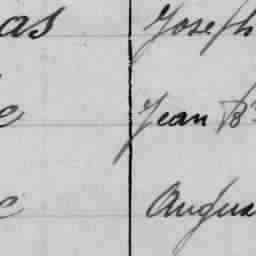 as Joseph
e Jean Bt
e Augus